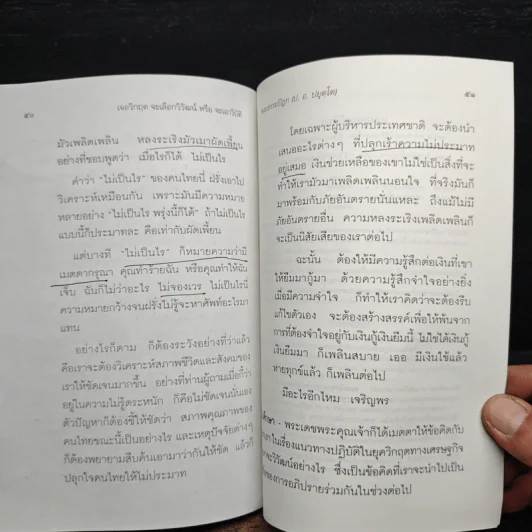 ๕๐
เจอวิกฤต จะเลือกวิวัฒน์ หรือ จะเอาวิบัติ
มัวเพลิดเพลิน หลงระเริงมัวเมาผัดเพี้ยน
อย่างที่ชอบพูดว่า เมื่อไรก็ได้ ไม่เป็นไร
คำว่า "ไม่เป็นไร" ของคนไทยนี้ ฝรั่งเอาไป
วิเคราะห์เหมือนกัน เพราะมันมีความหมาย
หลายอย่าง "ไม่เป็นไร พรุ่งนี้ก็ได้" ถ้าไม่เป็นไร
แบบนี้ก็ประมาทละ คือเท่ากับผัดเพี้ยน
แต่บางที "ไม่เป็นไร" ก็หมายความว่ามี
เมตตากรุณา คุณทำร้ายฉัน หรือคุณทำให้ฉัน
เจ็บ ฉันก็ไม่ว่าอะไร ไม่จองเวร ไม่เป็นไรมี
ความหมายกว้างจนฝรั่งไม่รู้จะหาศัพท์อะไรมา
แทน
อย่างไรก็ตาม ก็ต้องระวังอย่างที่ว่าแล้ว
คือเราจะต้องวิเคราะห์สภาพชีวิตและสังคมของ
เราให้ชัดเจนมากขึ้น อย่างที่ท่านผู้ถามเมื่อกี้ว่า
อยู่ในความไม่รู้ตระหนัก ก็คือไม่ชัดเจนนั่นเอง
ตัวปัญหาก็ต้องชี้ให้ชัดว่า สภาพคุณภาพของ
คนไทยขณะนี้เป็นอย่างไร และเหตุปัจจัยต่างๆ
ก็ต้องพยายามสืบค้นเอามาว่ากันให้ชัด แล้วก็
ปลุกใจคนไทยให้ไม่ประมาท
พระธรรมปิฎก (ป. อ. ปยุตฺโต)
๕๑
โดยเฉพาะผู้บริหารประเทศชาติ จะต้องนำ
เสนออะไรต่างๆ ที่ปลุกเร้าความไม่ประมาท
อยู่เสมอ เงินช่วยเหลือของเขาไม่ใช่เป็นสิ่งที่จะ
ทำให้เรามัวมาเพลิดเพลินนอนใจ ที่จริงมันก็
มาพร้อมกับภัยอันตรายนั่นแหละ ถึงแม้ไม่มี
ภัยอันตรายอื่น ความหลงระเริงเพลิดเพลินก็
จะเป็นนิสัยเสียของเราต่อไป
ฉะนั้น ต้องให้มีความรู้สึกต่อเงินที่เขา
ให้ยืมมากู้มา ด้วยความรู้สึกจำใจอย่างยิ่ง
เมื่อมีความจำใจ ก็ทำให้เราคิดว่าจะต้องรีบ
แก้ไขตัวเอง จะต้องสร้างสรรค์เพื่อให้พ้นจาก
การที่ต้องจำใจอยู่กับเงินกู้เงินยืมนี้ ไม่ใช่ได้เงินกู้
เงินยืมมา ก็เพลินสบาย เออ มีเงินใช้แล้ว
หายทุกข์แล้ว ก็เพลินต่อไป
มีอะไรอีกไหม เจริญพร
ศึกษา - พระเดชพระคุณเจ้าก็ได้เมตตาให้ข้อคิดกับ
ในเรื่องแนวทางปฏิบัติในยุควิกฤตทางเศรษฐกิจ
จะวิวัฒน์อย่างไร ซึ่งเป็นข้อคิดที่เราจะนำไปเป็น
ของการอภิปรายร่วมกันในช่วงต่อไป